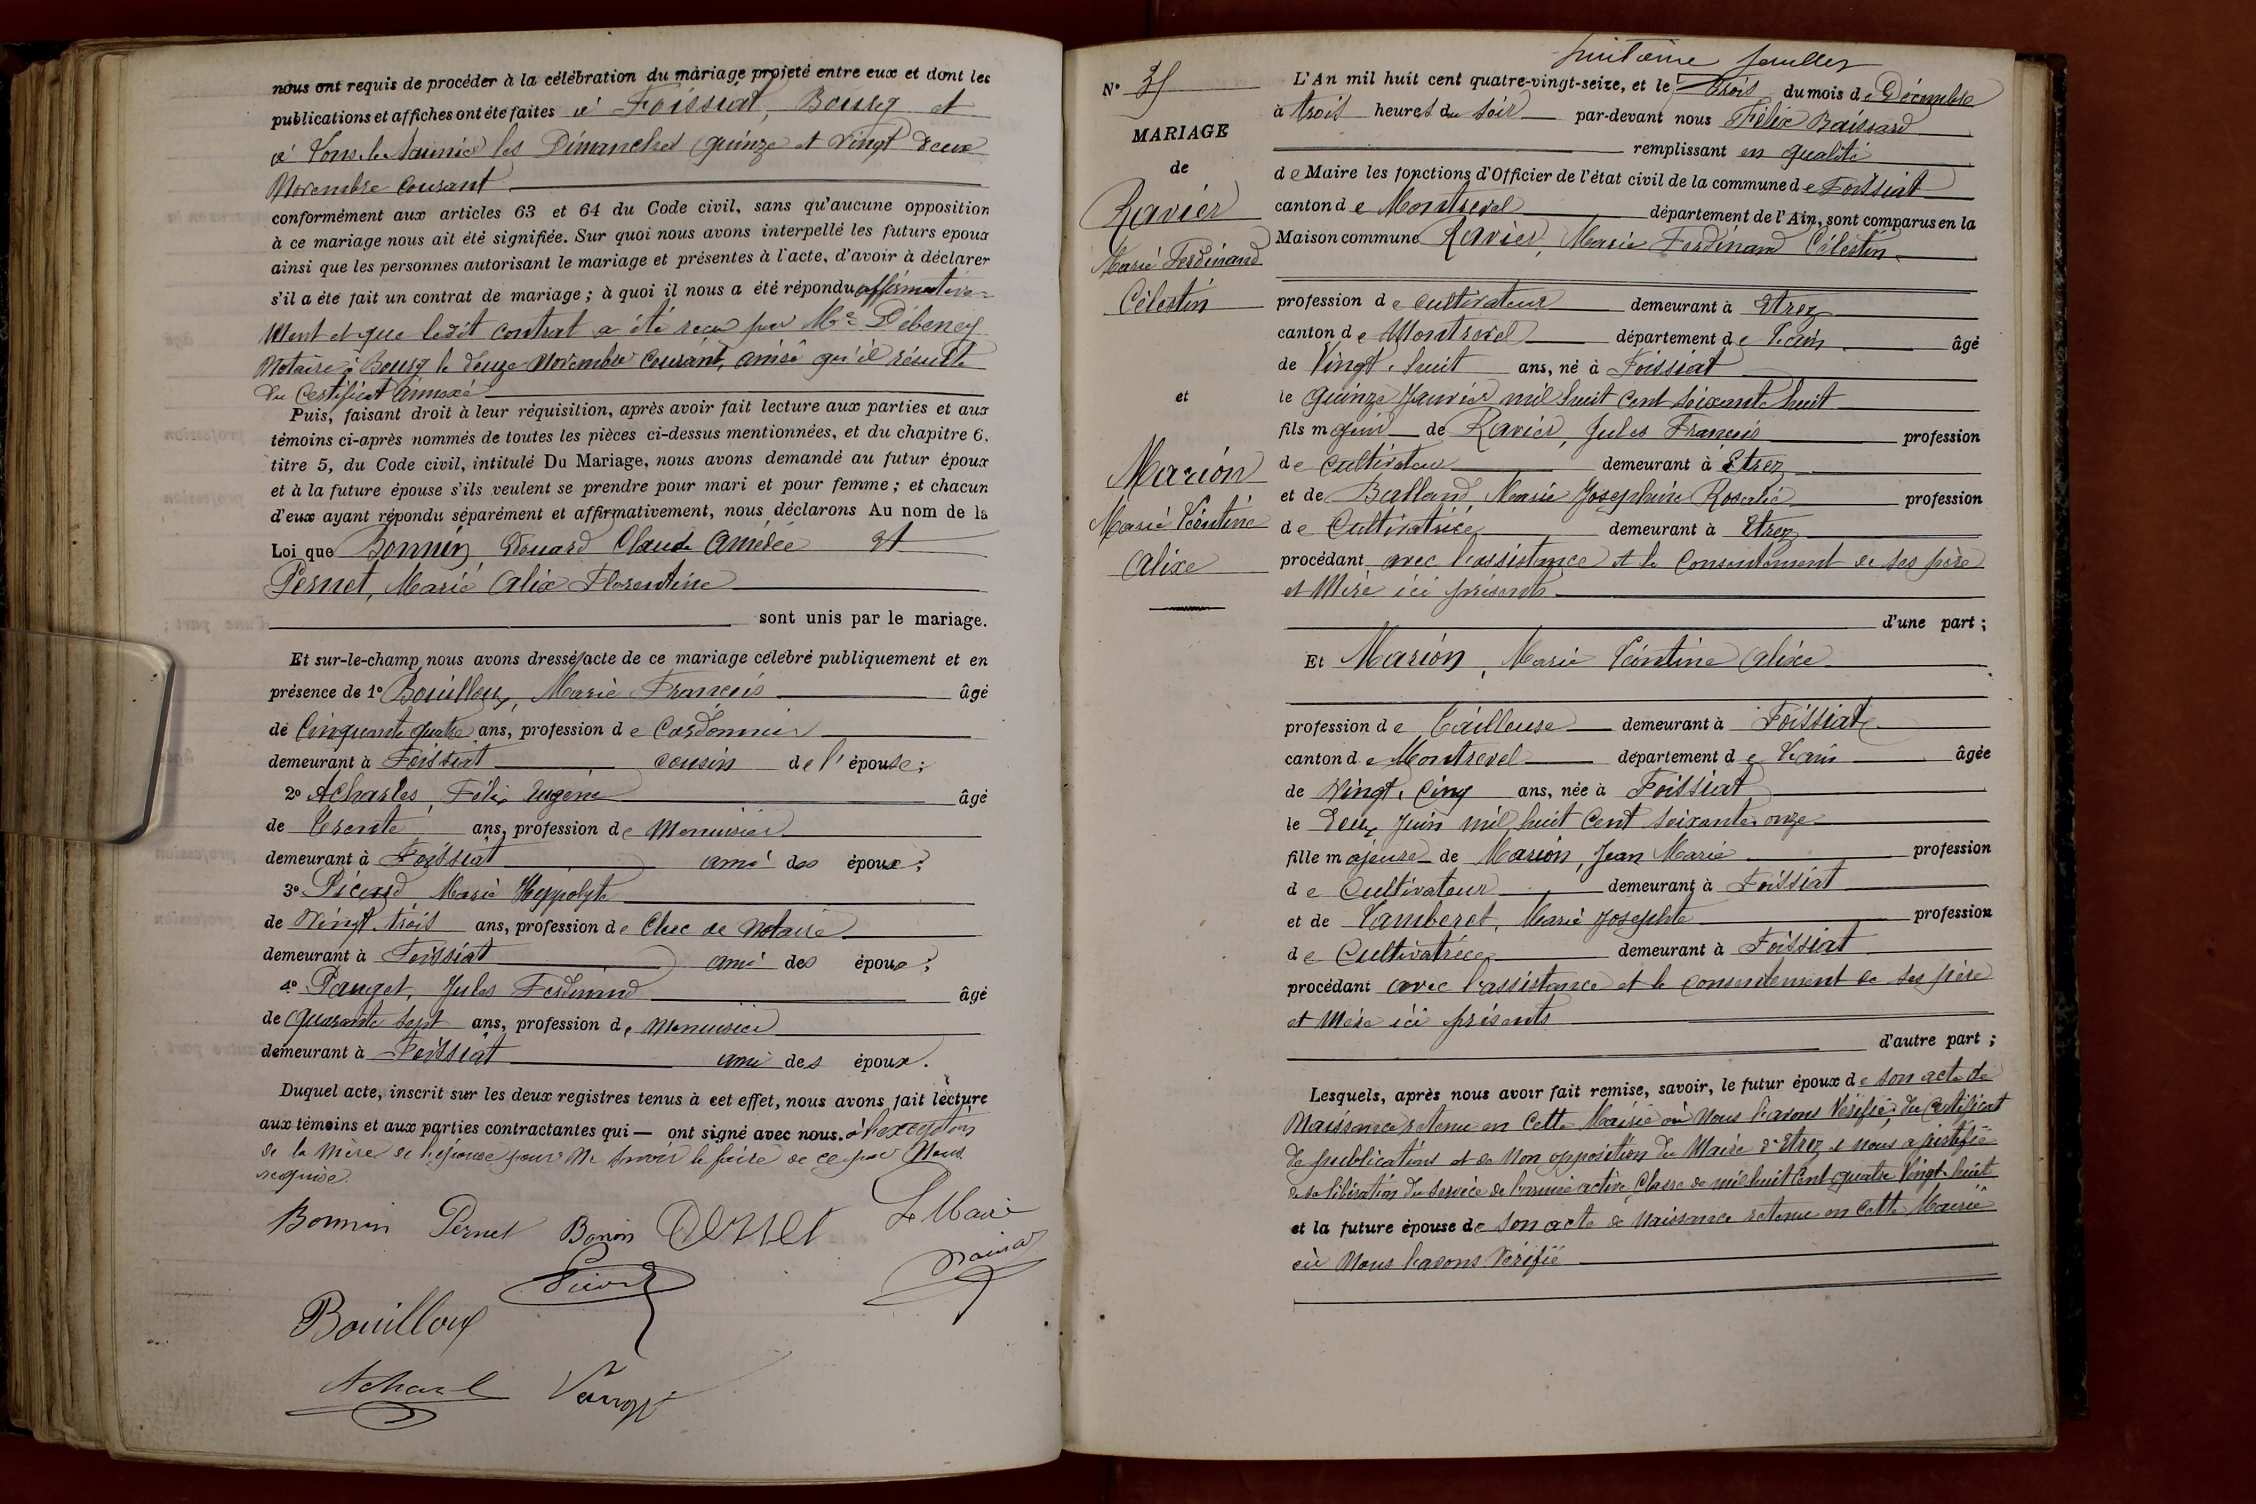 nous ont requis de procéder à la célébration du mariage projeté entre eux et dont les
publications et affiches ont été faites à Foissiat, Bourg et
à Lons-le-Saunier les Dimanches quinze et vingt deux
Novembre courant
conformément aux articles 63 et 64 du Code civil, sans qu'aucune opposition
à ce mariage nous ait été signifiée. Sur quoi nous avons interpellé les futurs époux
ainsi que les personnes autorisant le mariage et présentes à l'acte, d'avoir à déclarer
s'il a été fait un contrat de mariage ; à quoi il nous a été répondu affirmative-
ment et que ledit contrat a été reçu par Me Debeney
Notaire à Bourg le douze Novembre courant, ainsi qu'il résulte
du certificat annexé
Puis, faisant droit à leur réquisition, après avoir fait lecture aux parties et aux
témoins ci-après nommés de toutes les pièces ci-dessus mentionnées, et du chapitre 6,
titre 5, du Code civil, intitulé Du Mariage, nous avons demandé au futur époux
et à la future épouse s'ils veulent se prendre pour mari et pour femme ; et chacun
d'eux ayant répondu séparément et affirmativement, nous déclarons Au nom de la
Loi que Bonnin, Edouard Claude Amédée et
Pernet, Marie Alix Florentine
sont unis par le mariage.
Et sur-le-champ nous avons dressé acte de ce mariage célébré publiquement et en
présence de 1° Bouilloux, Marie François âgé
de Cinquante quatre ans, profession de Cordonnier
demeurant à Foissiat cousin de l'épouse ;
2° Acharles, Félix Eugène âgé
de Trente ans, profession de Menuisier
demeurant à Foissiat ami des époux ;
3° Picard Marie Hyppolyte
de Vingt trois ans, profession de Clerc de Notaire
demeurant à Foissiat ami des époux ;
4° Pauget, Jules Ferdinand âgé
de quarante sept ans, profession de Menuisier
demeurant à Foissiat ami des époux.
Duquel acte, inscrit sur les deux registres tenus à cet effet, nous avons fait lecture
aux témoins et aux parties contractantes qui ont signé avec nous. à l'exception
de la mère de l'épouse pour ne savoir le faire de ce par Nous
requise
Bonnin Pernet Bonin Pernet Le Maire
Picard
Bouilloux
Acharl
N° 31
huitième feuillet
MARIAGE
de
Ravier
Marie Ferdinand
Célestin
et
Marion
Marie Léontine
Alixe
L'An mil huit cent quatre-vingt-seize, et le Trois du mois de Décembre
à trois heures du soir par-devant nous Félix Baissard
remplissant en qualité
de Maire les fonctions d'Officier de l'état civil de la commune de Foissiat
canton de Montrevel département de l'Ain, sont comparus en la
Maison commune Ravier, Marie Ferdinand Célestin
profession de cultivateur demeurant à Etrez
canton de Montrevel département de l'ain âgé
de Vingt-huit ans, né à Foissiat
le quinze Janvier mil huit cent soixante huit
fils majeur de Ravier, Jules François profession
de cultivateur demeurant à Etrez
et de Balland, Marie Josephine Rosalie profession
de Cultivatrice demeurant à Etrez
procédant avec l'assistance et le consentement de ses père
et Mère ici présents
d'une part ;
Et Marion, Marie Léontine Alixe
profession de Tailleuse demeurant à Foissiat
canton de Montrevel département de l'ain âgée
de Vingt-cinq ans, née à Foissiat
le deux Juin mil huit cent soixante-onze
fille majeure de Marion, Jean Marie profession
de Cultivateur demeurant à Foissiat
et de Lamberet, Marie Josephte profession
de Cultivatrice demeurant à Foissiat
procédant avec l'assistance et le consentement de ses père
et Mère ici présents
d'autre part ;
Lesquels, après nous avoir fait remise, savoir, le futur époux de son acte de
Naissance retenu en cette Mairie où Nous l'avons Vérifié, du certificat
de publications et de non opposition du Maire d'Etrez, nous a justifié
de sa libération du service de l'armée active Classe de mil huit cent quatre vingt-huit
et la future épouse de son acte de Naissance retenu en cette Mairie
où Nous l'avons Vérifié